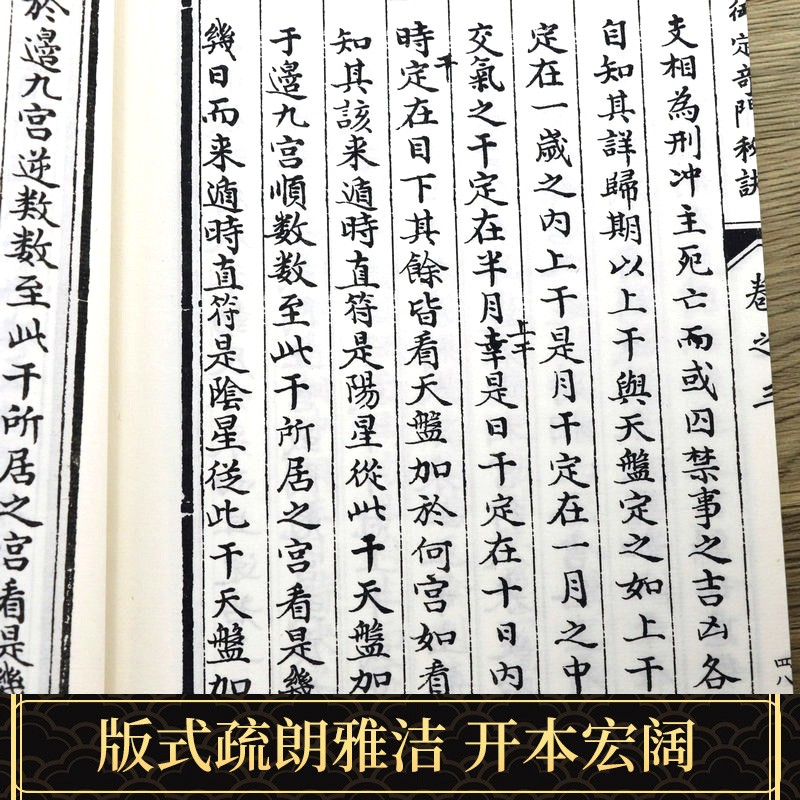 御定奇門秘訣
卷之三
四八
支相為刑冲主死亡而或囚禁事之吉凶各
自知其詳歸期以上干與天盤定之如上干
定在一歲之内上干是月干定在一月之中
交氣之干定在半月幸是日干定在十日内
上干
時定在目下其餘皆看天盤加於何宮如看
干
知其該来遁時直符是陽星從此干天盤加
于邉九宮順数数至此干所居之宮看是幾
幾日而来遁時直符是陰星従此干天盤加
於邉九宮逆数数至此干所居之宮看是幾
版式疏朗雅洁 开本宏阔